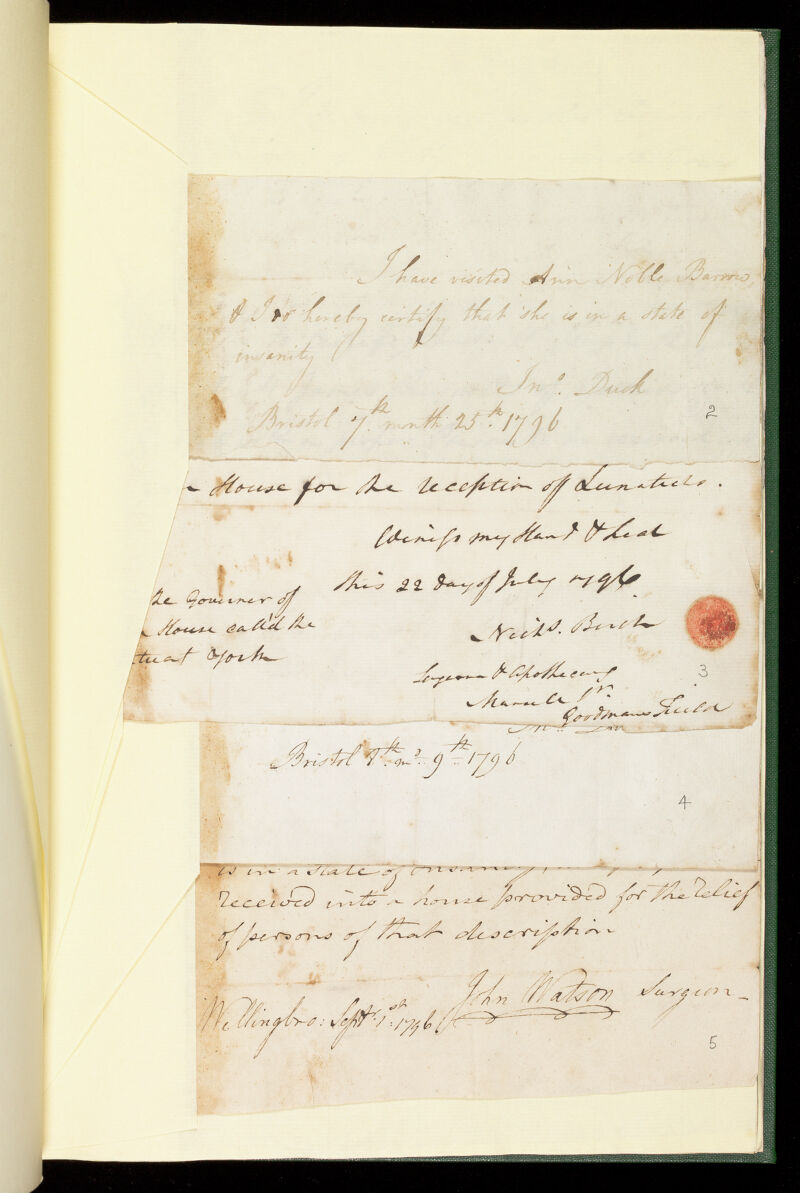 I have visited Ann Noble Barrow,
& I do hereby certify that she is in a state of
insanity
Jno. Duck
Bristol 7th month 25th 1796
2
House for the reception of Lunaticks.
Witness my Hand & Seal
this 22 Day of July 1796
the Governer of
House calld the
York
Nichs. Birch
Surgeon & Apothecary
Mansell Sr.
Goodmans Field
3
Bristol 8th mo. 9th 1796
4
is in a state of insanity
received into a house provided for the relief
of persons of that description
John Watson Surgeon
Wellingbro: Septr. 1st 1796
5